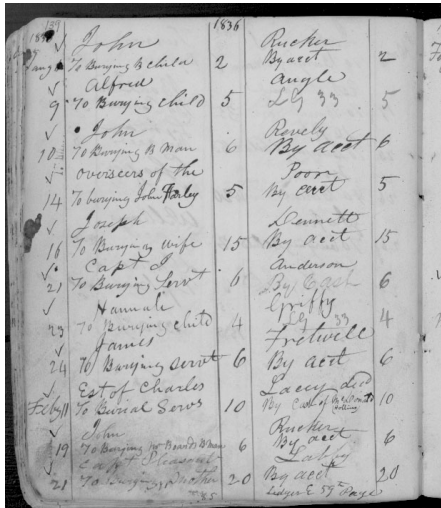 139
1836
John Rucker
To Burying B child 2 By acct 2
Alfred Angle
9 To Burying child 5 Lg 33 5
John Revely
10 To Burying B Man 6 By acct 6
Overseers of the Poor
14 To burying John 5 By acct 5
Joseph Dennett
16 To Burying wife 15 By acct 15
Capt J Anderson
21 To Burying Servt 6 By Cash 6
Hannah Griffy
23 To Burying child 4 Lg 33 4
James Fretwell
24 To Burying servt 6 By acct 6
Est of Charles Lacey decd
Feby 11 To Burial Servs 10 By Cash of 10
John Rucker
19 To Burying Man 6 By acct 6
Capt Pleasant Labby
21 To Burying Mother 20 By acct 20
85 Ledger E 59th Page